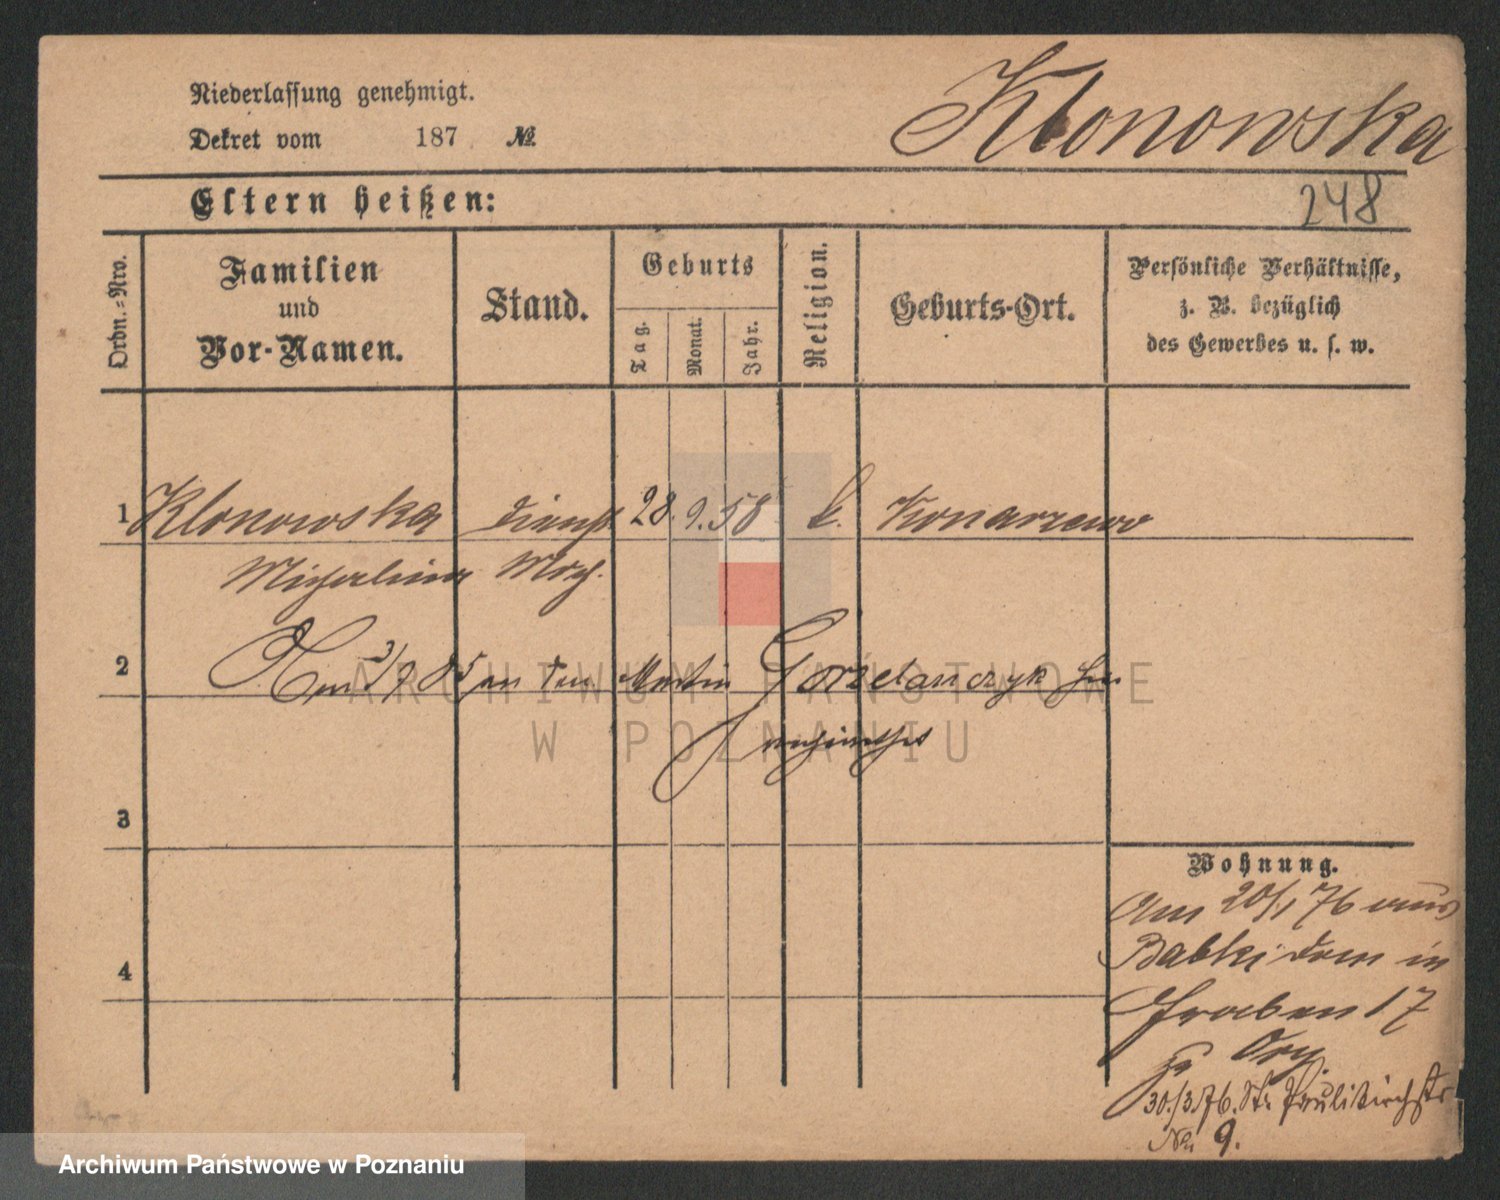 Niederlassung genehmigt.
Dekret vom 187 №
Klonowska
Eltern heißen:
248
Ordn.-Nro.
Familien
und
Vor-Namen.
Stand.
Geburts
Tag.
Monat.
Jahr.
Religion.
Geburts-Ort.
Persönliche Verhältnisse,
z. B. bezüglich
des Gewerbes u. s. w.
1 Klonowska Dienst 28. 9. 58 k. Konarzewo
Michalina
2 Am 3/9 85 an den Martin Gorzelanczyk
3
4
Wohnung.
Am 20/1 76 aus
Babki dom in
Graben 17
30./3.76. St. Paulikirchstr
No 9.
ARCHIWUM PAŃSTWOWE
W POZNANIU
Archiwum Państwowe w Poznaniu